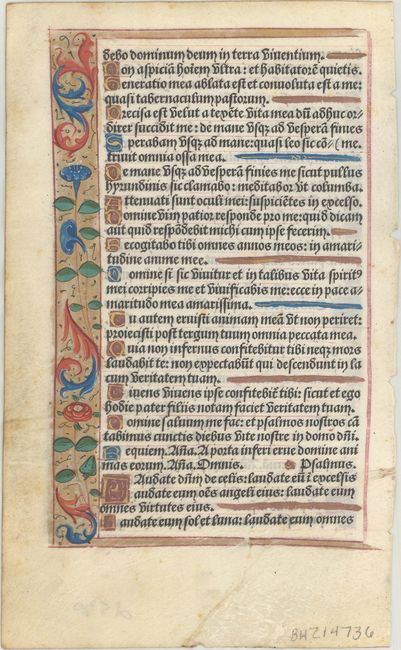 debo dominum deum in terra viventium.
Non aspiciā hoīem vltra: et habitatorē quietis.
Generatio mea ablata est et convoluta est a me:
quasi tabernaculum pastorum.
Precisa est velut a texēte vita mea dū adhuc or-
direr succidit me: de mane vsqȝ ad vesperā finies
Sperabam vsqȝ ad mane: quasi leo sic cō- (me.
triuit omnia ossa mea.
De mane vsqȝ ad vesperā finies me sicut pullus
hyrundinis sic clamabo: meditabor vt columba.
Attenuati sunt oculi mei: suspiciētes in excelso.
Domine vim patior respōde pro me: quid dicam
aut quid respōdebit michi cum ipse fecerim.
Recogitabo tibi omnes annos meos: in amari-
tudine anime mee.
Domine si sic viuitur et in talibus vita spirit⁹
mei corripies me et viuificabis me: ecce in pace a-
maritudo mea amarissima.
Tu autem eruisti animam meā vt non periret:
proiecisti post tergum tuum omnia peccata mea.
Quia non infernus confitebitur tibi neqȝ mors
laudabit te: non expectabūt qui descendunt in la
cum veritatem tuam.
Viuens viuens ipse confitebit̄ tibi: sicut et ego
hodie pater filiis notam faciet veritatem tuam.
Domine saluum me fac: et psalmos nostros cā
tabimus cunctis diebus vite nostre in domo dn̄i.
Requiem. Añа. A porta inferi erue domine ani
mas eorum. Aña. Omnis. Psalmus.
Laudate dn̄m de celis: laudate eū ī excelsis
Laudate eum oēs angeli eius: laudate eum
omnes virtutes eius.
Laudate eum sol et luna: laudate eum omnes
BHZ14736